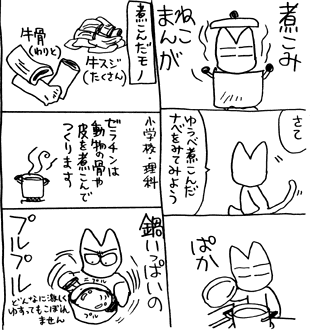 煮こみ
ねこ
まんが
さて
ゆうべ煮こんだ
ナベをみてみよう
ぱか
煮こんだモノ
牛スジ
(たくさん)
牛骨
(わりと)
小学校・理科
ゼラチンは
動物の骨や
皮を煮こんで
つくります
鍋いっぱいの
プルプル
プル
プル
どんなに激しく
ゆすってもこぼれ
ません